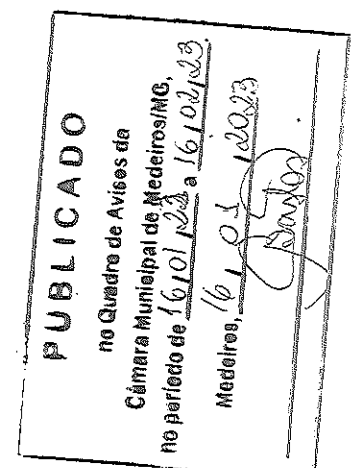 PUBLICADO
no Quadro de Avisos da
Câmara Municipal de Medeiros/MG,
no período de 16/01/23 a 16/02/23.
Medeiros, 16/01/2023